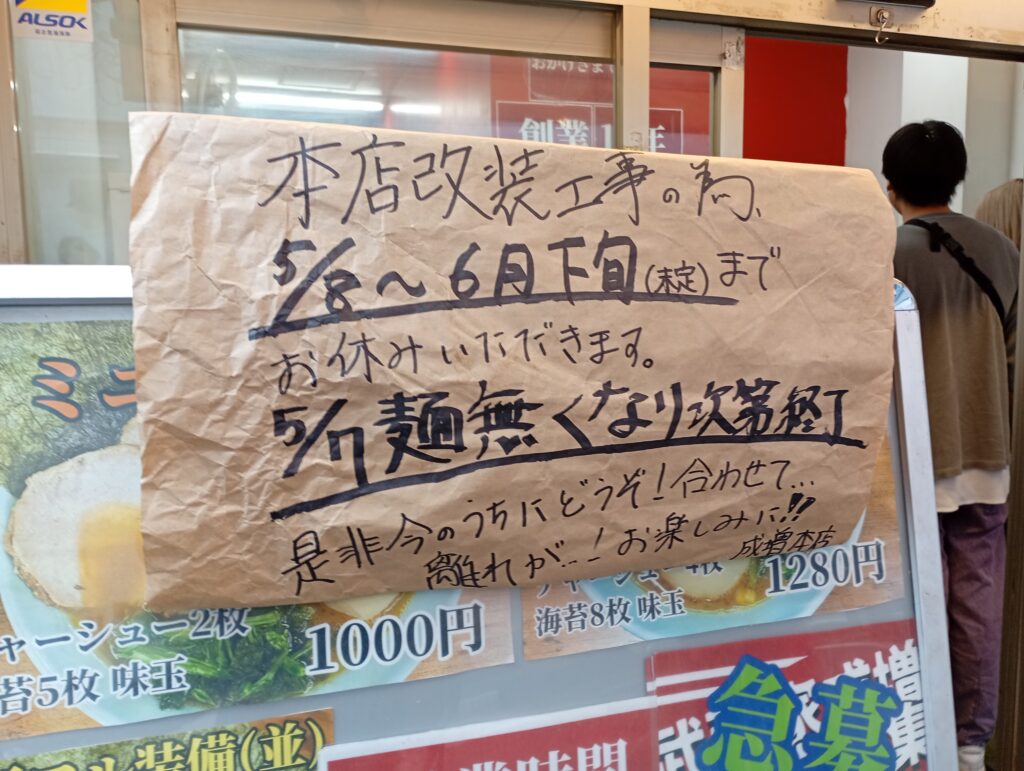 ALSOK
おかげさまで
創業1 年
本店改装工事の為、
5/8～6月下旬(未定)まで
お休みいただきます。
5/7麺無くなり次第終了
是非今のうちにどうぞ！合わせて…
離れが…！お楽しみに!!
成増本店
ミニ
ャーシュー2枚
苔5枚 味玉
1000円
チャーシュー4枚
海苔8枚 味玉
1280円
装備(並)
業時間
武 家 成増
急募集